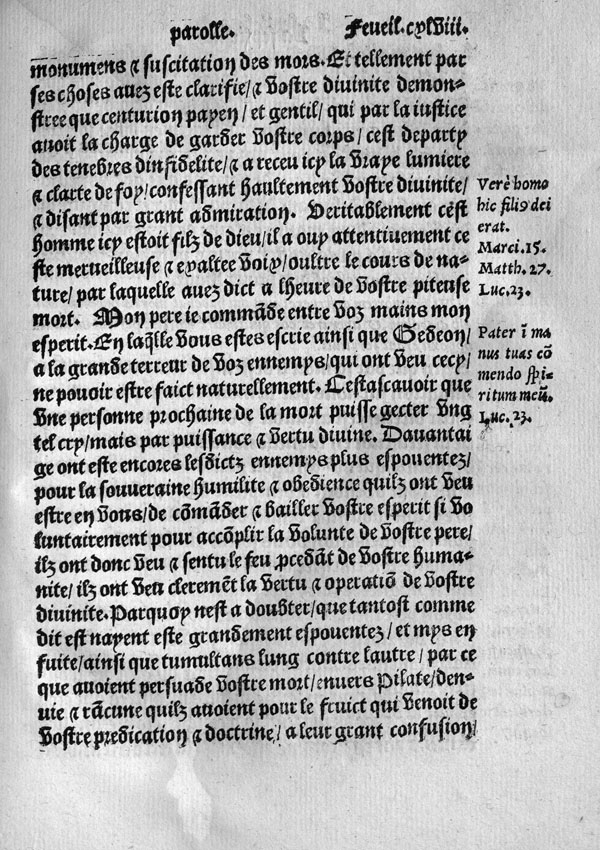 parolle. Feueil. cxlviii.
monumens ⁊ suscitation des mors. Et tellement par
ses choses auez este clarifie/⁊ vostre diuinite demon-
stree que centurion payen/ et gentil/ qui par la iustice
auoit la charge de garder vostre corps/ cest departy
des tenebres dinfidelite/⁊ a receu icy la vraye lumiere
⁊ clarte de foy/confessant haultement vostre diuinite/
⁊ disant par grant admiration. Veritablement cest
homme icy estoit filz de dieu/il a ouy attentiuement ce
ste merueilleuse ⁊ exaltee voix/oultre le cours de na-
ture/ par laquelle auez dict a lheure de vostre piteuse
mort. Mon pere ie commāde entre voz mains mon
esperit. En laq̄lle vous estes escrie ainsi que Gedeon/
a la grande terreur de voz ennemys/qui ont veu cecy/
ne pouoir estre faict naturellement. Cestascauoir que
vne personne prochaine de la mort puisse gecter vng
tel cry/mais par puissance ⁊ vertu diuine. Dauantai
ge ont este encores lesdictz ennemys plus espouentez/
pour la souueraine humilite ⁊ obedience quilz ont veu
estre en vous/de cōmāder ⁊ bailler vostre esperit si vo
luntairement pour accōplir la volunte de vostre pere/
ilz ont donc veu ⁊ sentu le feu ꝓcedāt de vostre huma-
nite/ ilz ont veu cleremēt la vertu ⁊ operatiō de vostre
diuinite. Parquoy nest a doubter/que tantost comme
dit est nayent este grandement espouentez/ et mys en
fuite/ainsi que tumultans lung contre lautre/ par ce
que auoient persuade vostre mort/enuers Pilate/den-
uie ⁊ rācune quilz auoient pour le fruict qui venoit de
vostre predication ⁊ doctrine/ a leur grant confusion/
Verè homo
hic filiꝰ dei
erat.
Marci. 15.
Matth. 27.
Luc. 23.
Pater ī ma
nus tuas cō
mendo spi-
ritum meū.
Luc. 23.